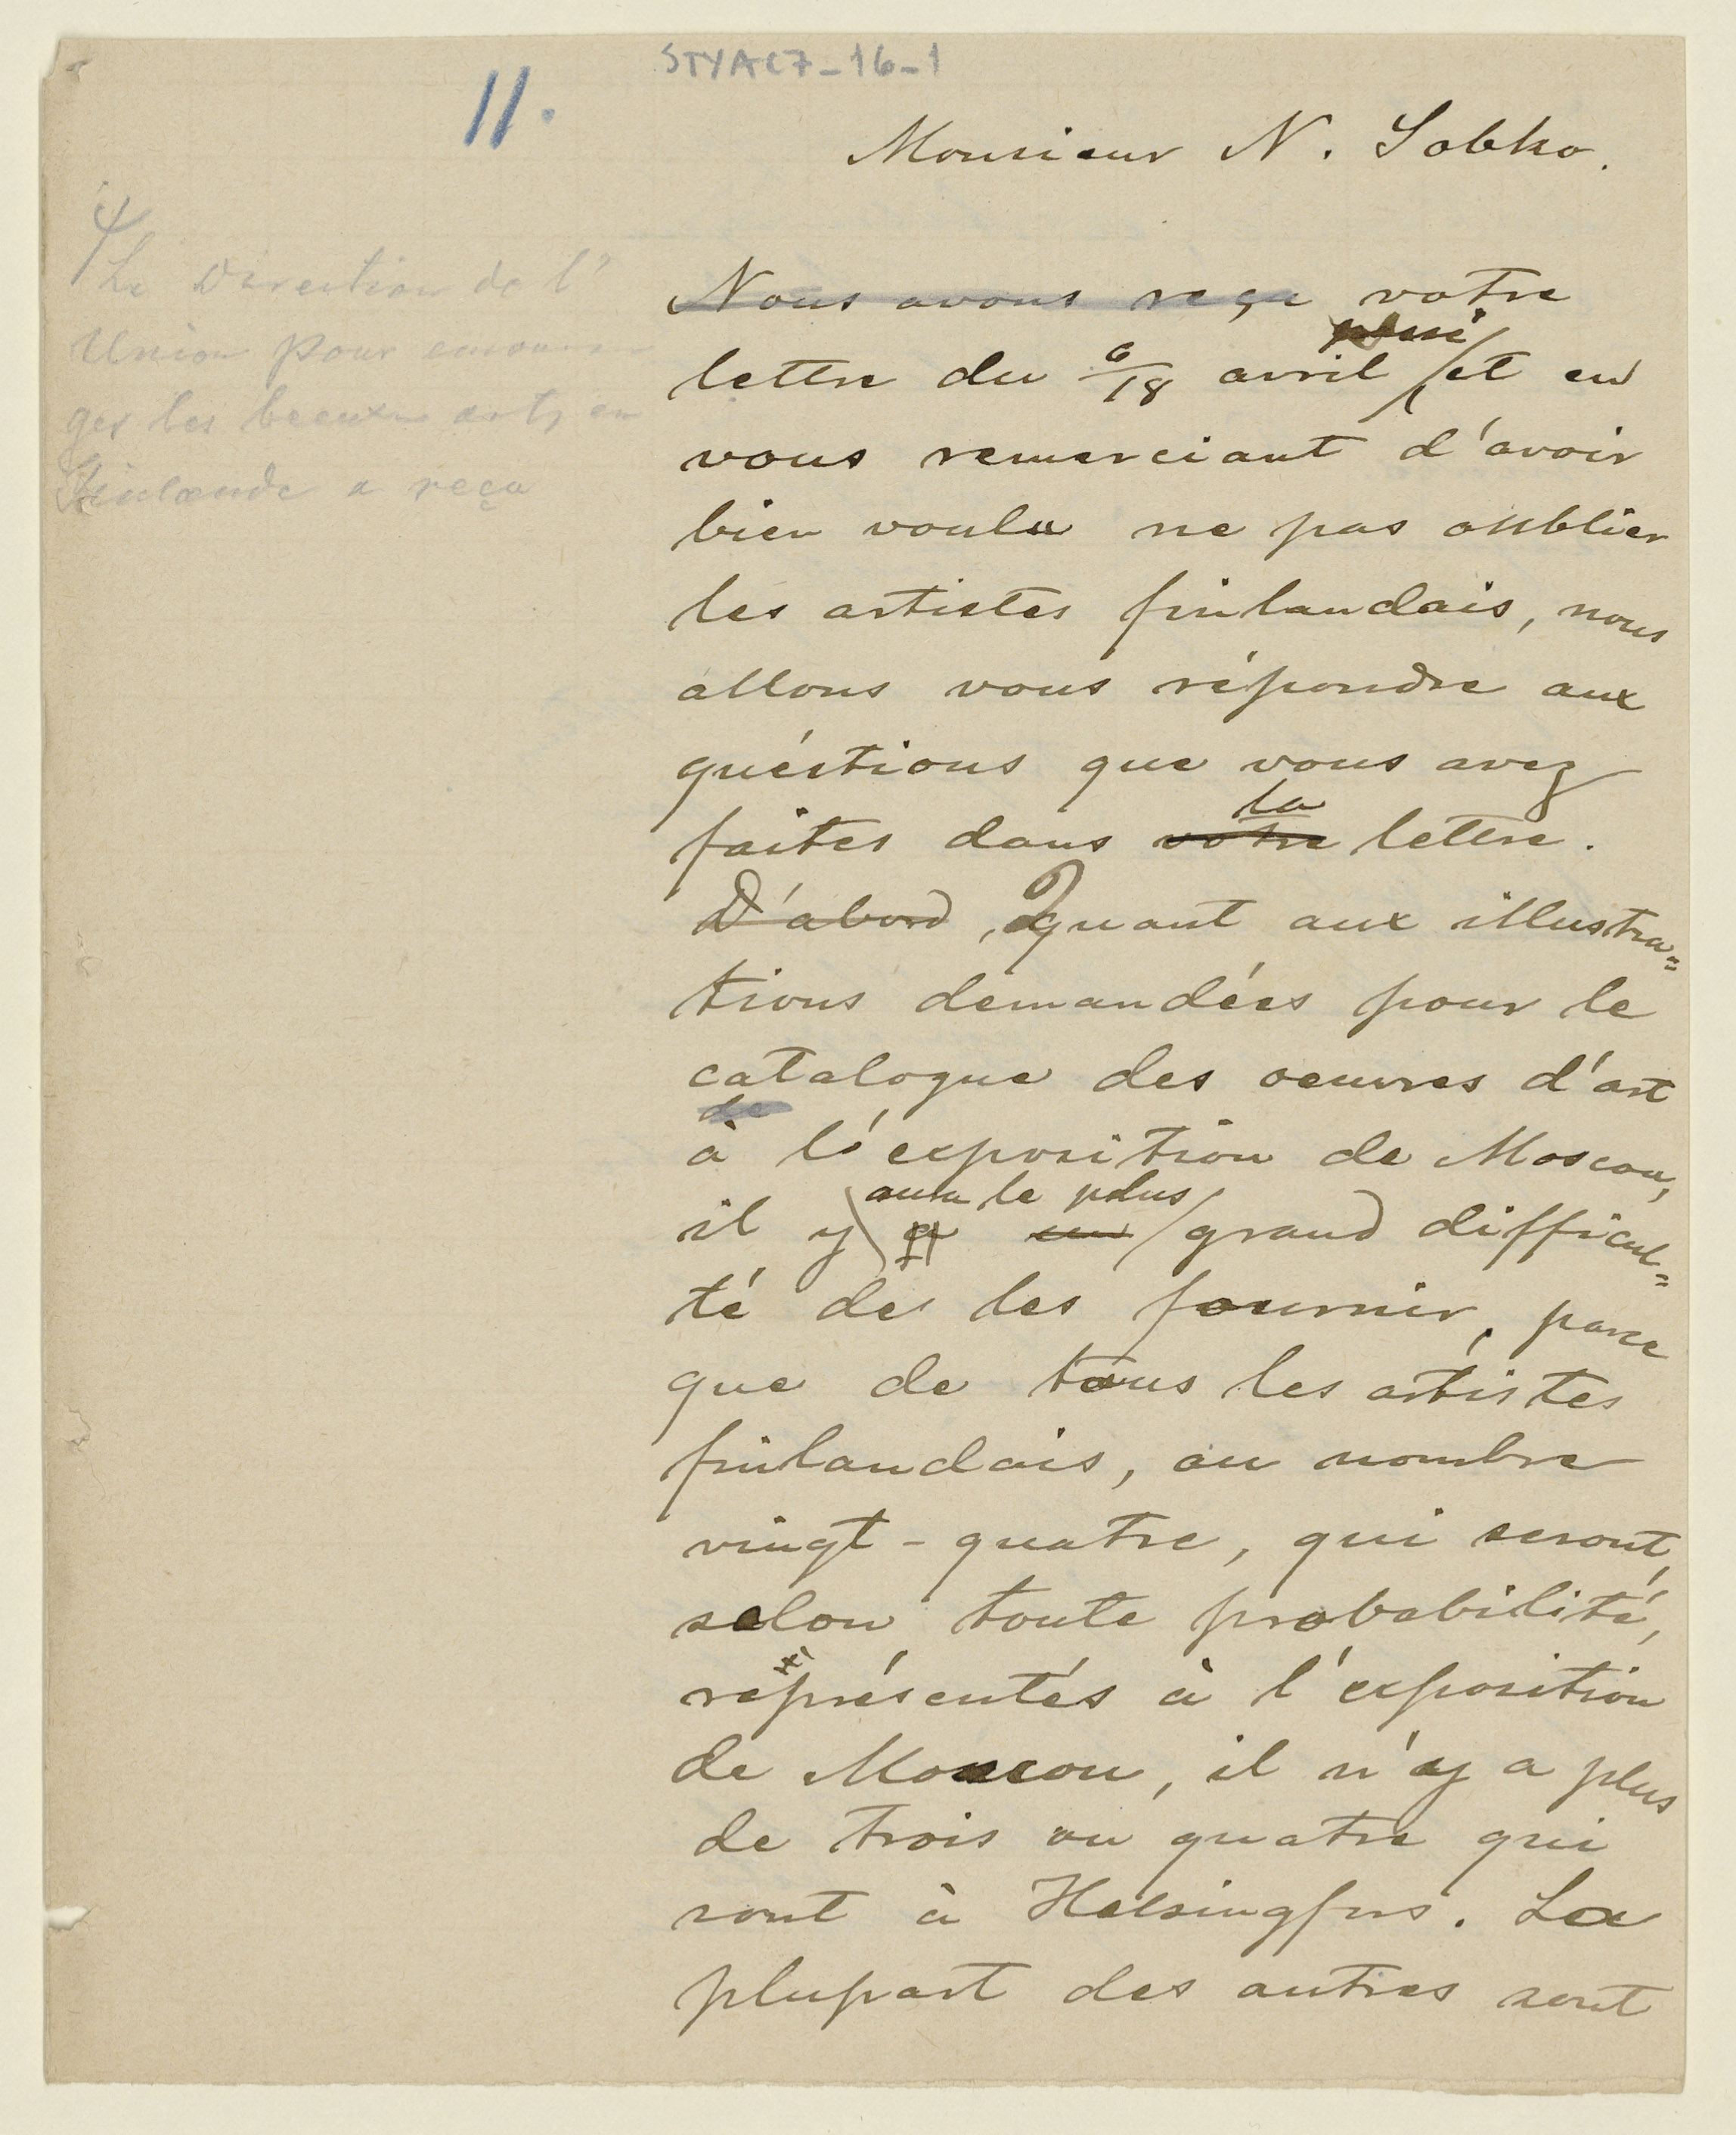 STYAC7-16-1
11.
Monsieur N. Sobko.
La Direction de l'
Union pour encoura
ger les beaux arts en
Finlande a reçu
Nous avons reçu votre
lettre du 6/18 avril et en
vous remerciant d'avoir
bien voulu ne pas oublier
les artistes finlandais, nous
allons vous répondre aux
quéstions que vous avez
la
faites dans votre lettre.
D'abord, Quant aux illustra=
tions demandées pour le
catalogue des oeuvres d'art
de
à l'exposition de Moscou,
aura le plus
il y a un grand difficul=
té de les fournir, parce
que de tous les artistes
finlandais, au nombre
vingt-quatre, qui seront,
selon toute probabilité,
représentés à l'exposition
de Moscou, il n'y a plus
de trois ou quatre qui
sont à Helsingfors. La
plupart des autres sont